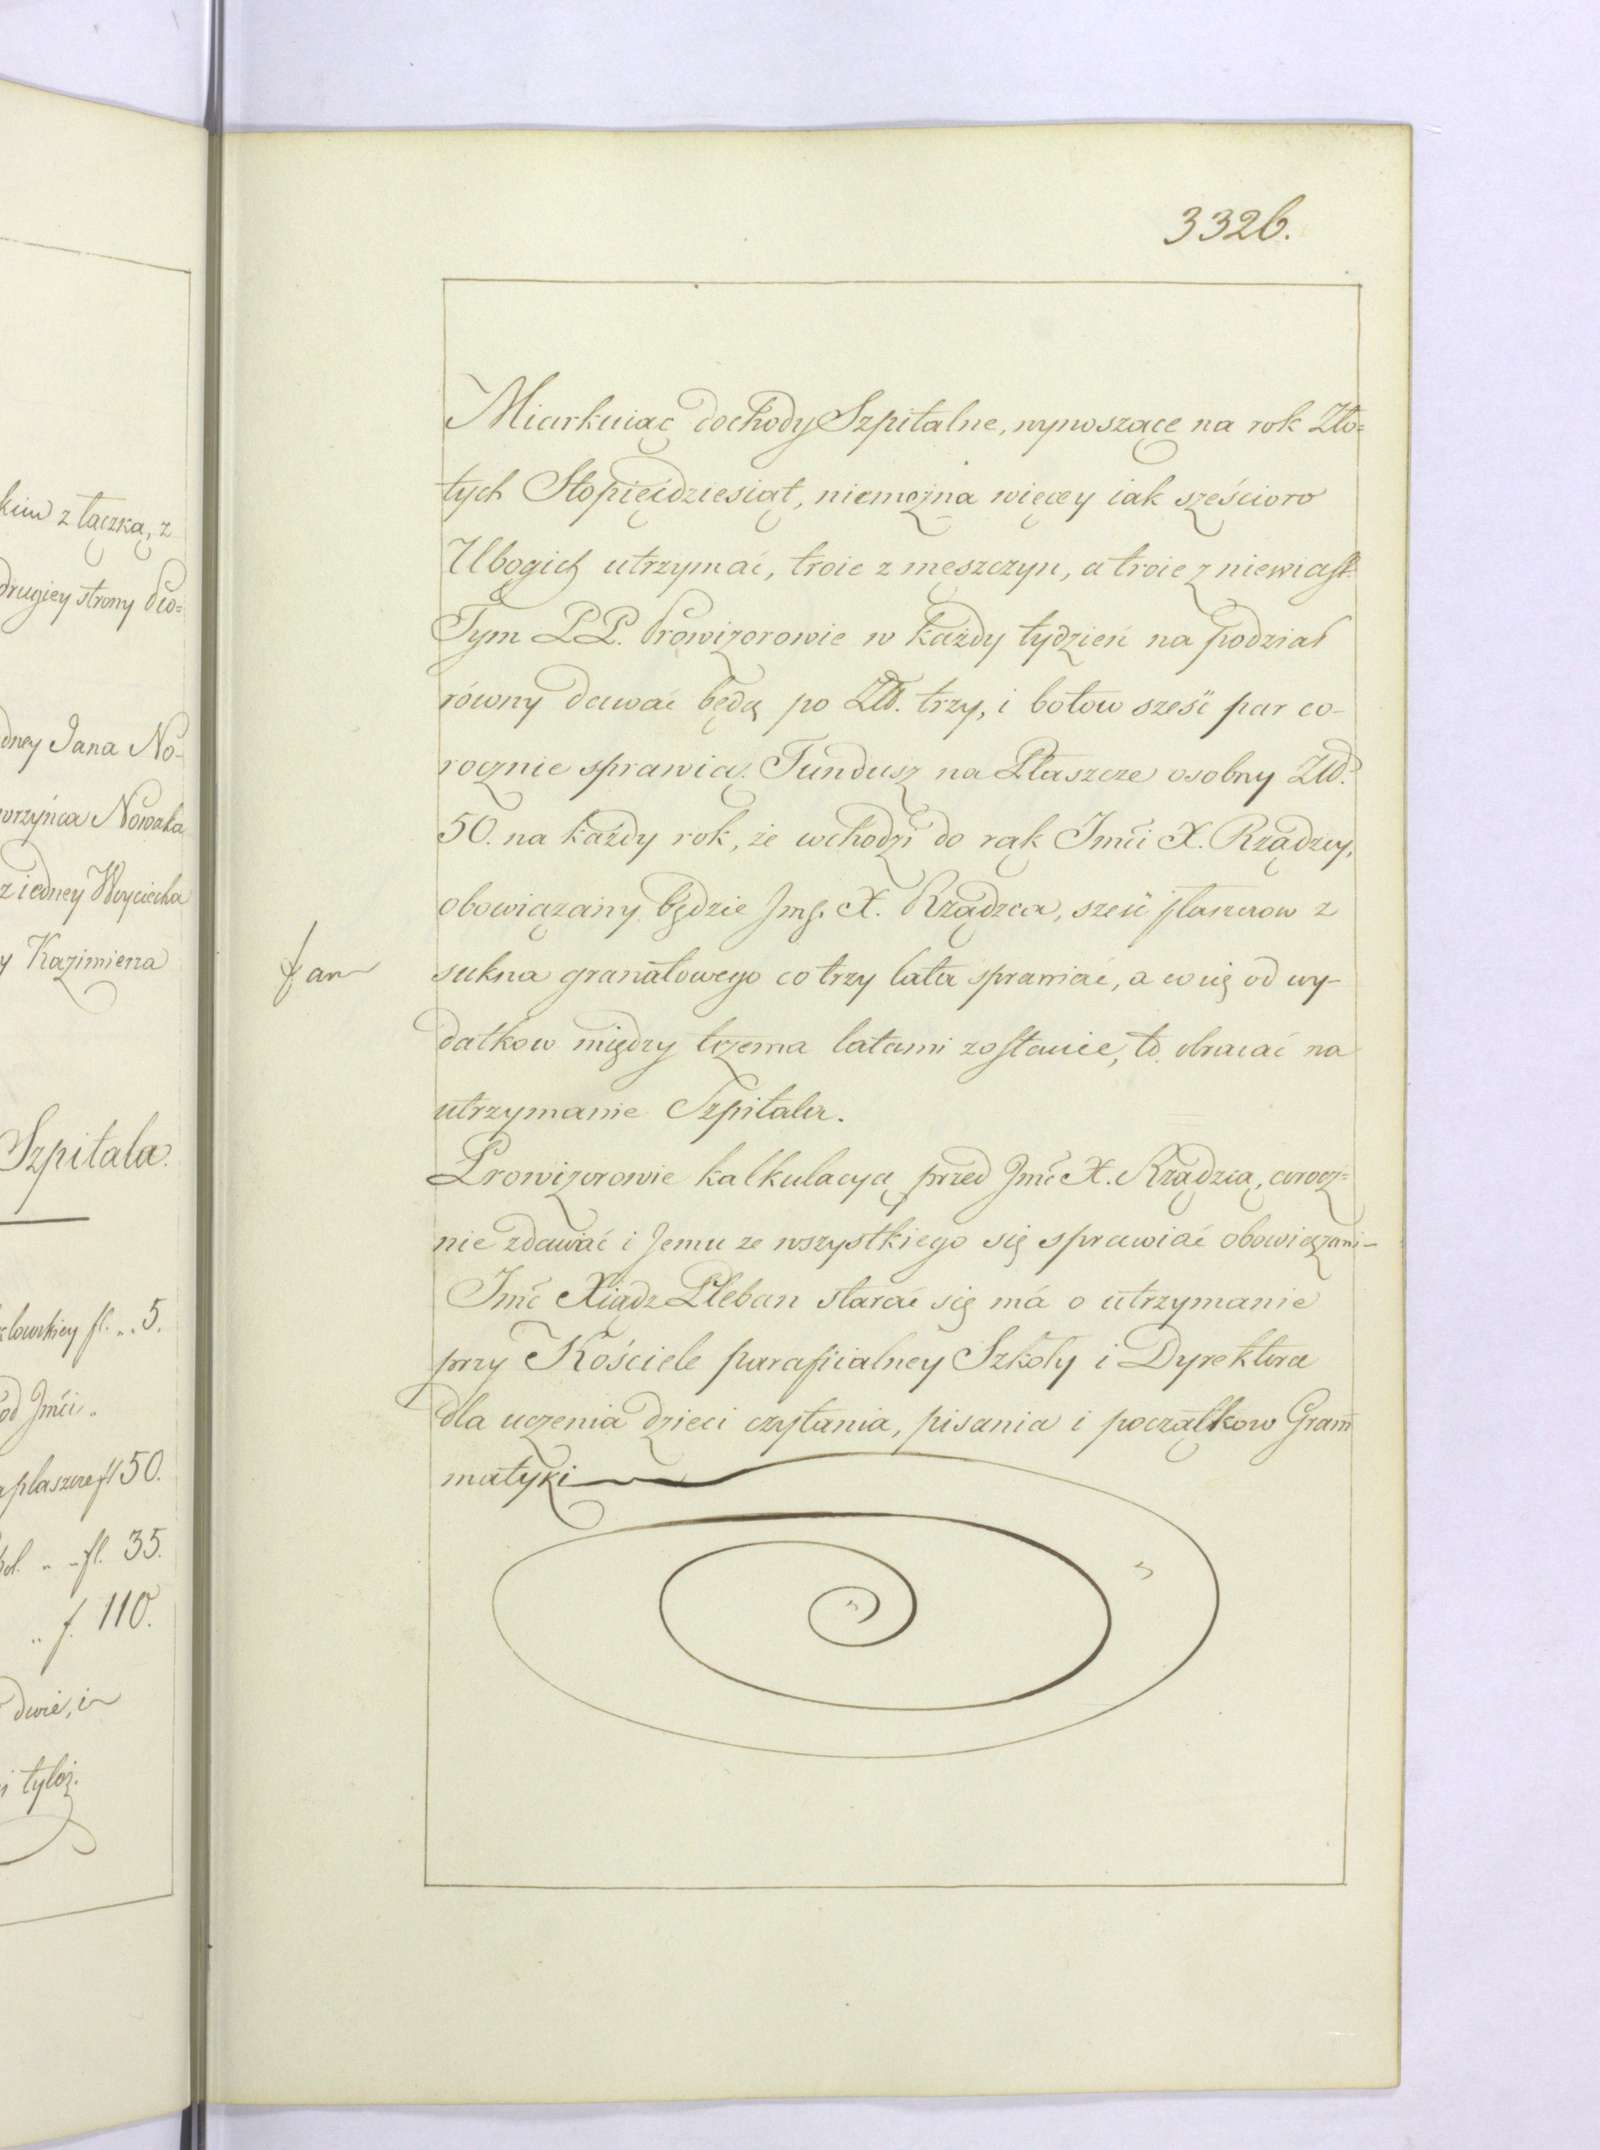 kim z łączką, z
drugiey strony Pio=
dney Jana No-
worzyńca Nowaka
z iedney Woyciecha
y Kazimierza
Szpitala.
fl. „ „ 5.
od Jmći „
płaszcze fl 50.
„ „ fl. 35.
„ f. 110.
dwie, i
i tyloż.
3326.
Miarkuiąc dochody Szpitalne, wynoszące na rok Zło=
tych Stopięćdziesiąt, niemożna więcey iak sześcioro
Ubogich utrzymać, troie z męszczyn, a troie z niewiast.
Tym PP. Prowizorowie w każdy tydzień na podział
równy dawać będą po Złł. trzy, i botow sześć par co-
rocznie sprawią. Fundusz na Płaszcze osobny Złł.
50. na każdy rok, że wchodzi do rąk Jmći X. Rządzcy,
obowiązany będzie Jmć. X. Rządzca, sześć płaszczow z
sukna granatowego co trzy lata sprawiać, a co się od wy-
datkow między trzema latami zostanie, to obracać na
utrzymanie Szpitala.
Prowizorowie kalkulacyą przed Jmć X. Rządzcą, corocz=
nie zdawać i Jemu ze wszystkiego się sprawiać obowiązani-
Jmć Xiądz Pleban starać się má o utrzymanie
przy Kościele parafialney Szkoły i Dyrektora
dla uczenia dzieci czytania, pisania i początkow Gram̄
matyki